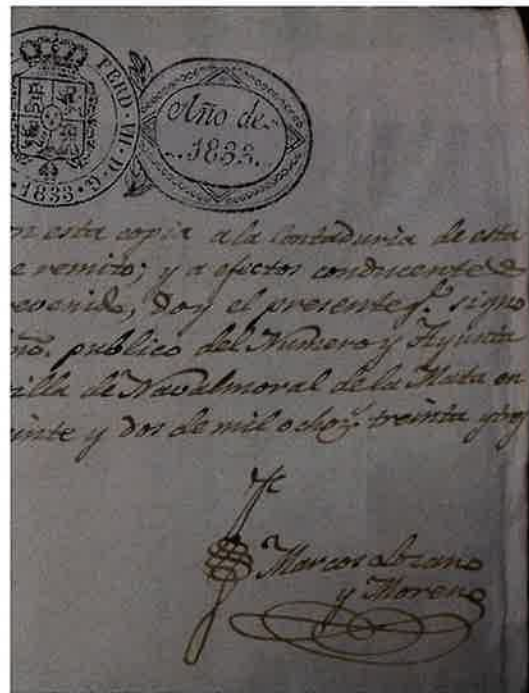 FERD · VII · D · G
· 1833 ·
Año de
1833
n esta copia a la Contaduria de esta
e remito; y a efectos conducente
evenido, doy el presente q.e signo
ño. publico del Numero y Ayunta
villa de Navalmoral de la Mata en
inte y dos de mil ochoz.s treinta y
Marcos Lozano
y Moreno